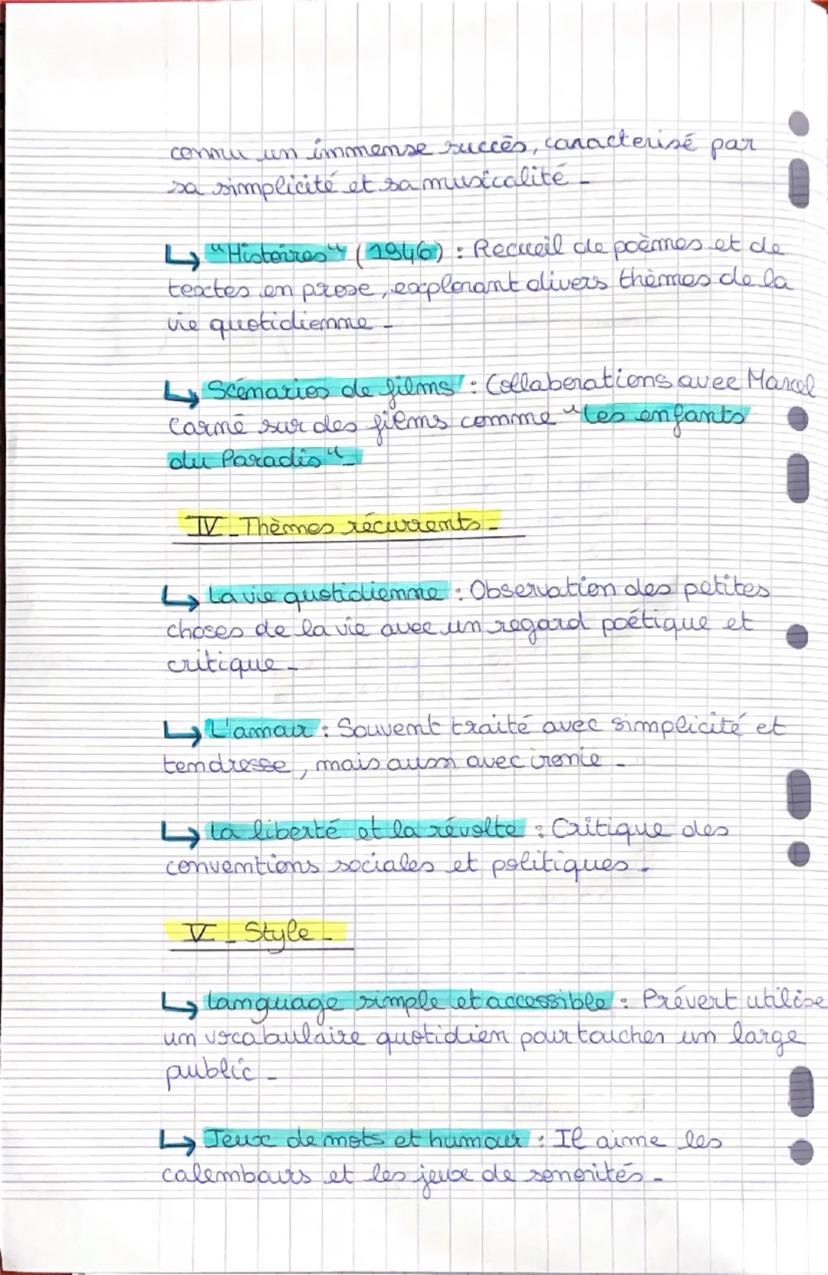 connu un immense succès, caracterisé par
sa simplicité et sa musicalité -
↳ "Histoires" (1946) : Recueil de poèmes et de
textes en prose, explorant divers thèmes de la
vie quotidienne -
↳ Scénarios de films : Collaborations avec Marcel
Carné sur des films comme "Les enfants
du Paradis" -
IV - Thèmes récurrents -
↳ La vie quotidienne : Observation des petites
choses de la vie avec un regard poétique et
critique -
↳ L'amour : Souvent traité avec simplicité et
tendresse, mais aussi avec ironie -
↳ La liberté et la révolte : Critique des
conventions sociales et politiques -
V - Style -
↳ Language simple et accessible : Prévert utilise
un vocabulaire quotidien pour toucher un large
public -
↳ Jeux de mots et humour : Il aime les
calembours et les jeux de sonorités -